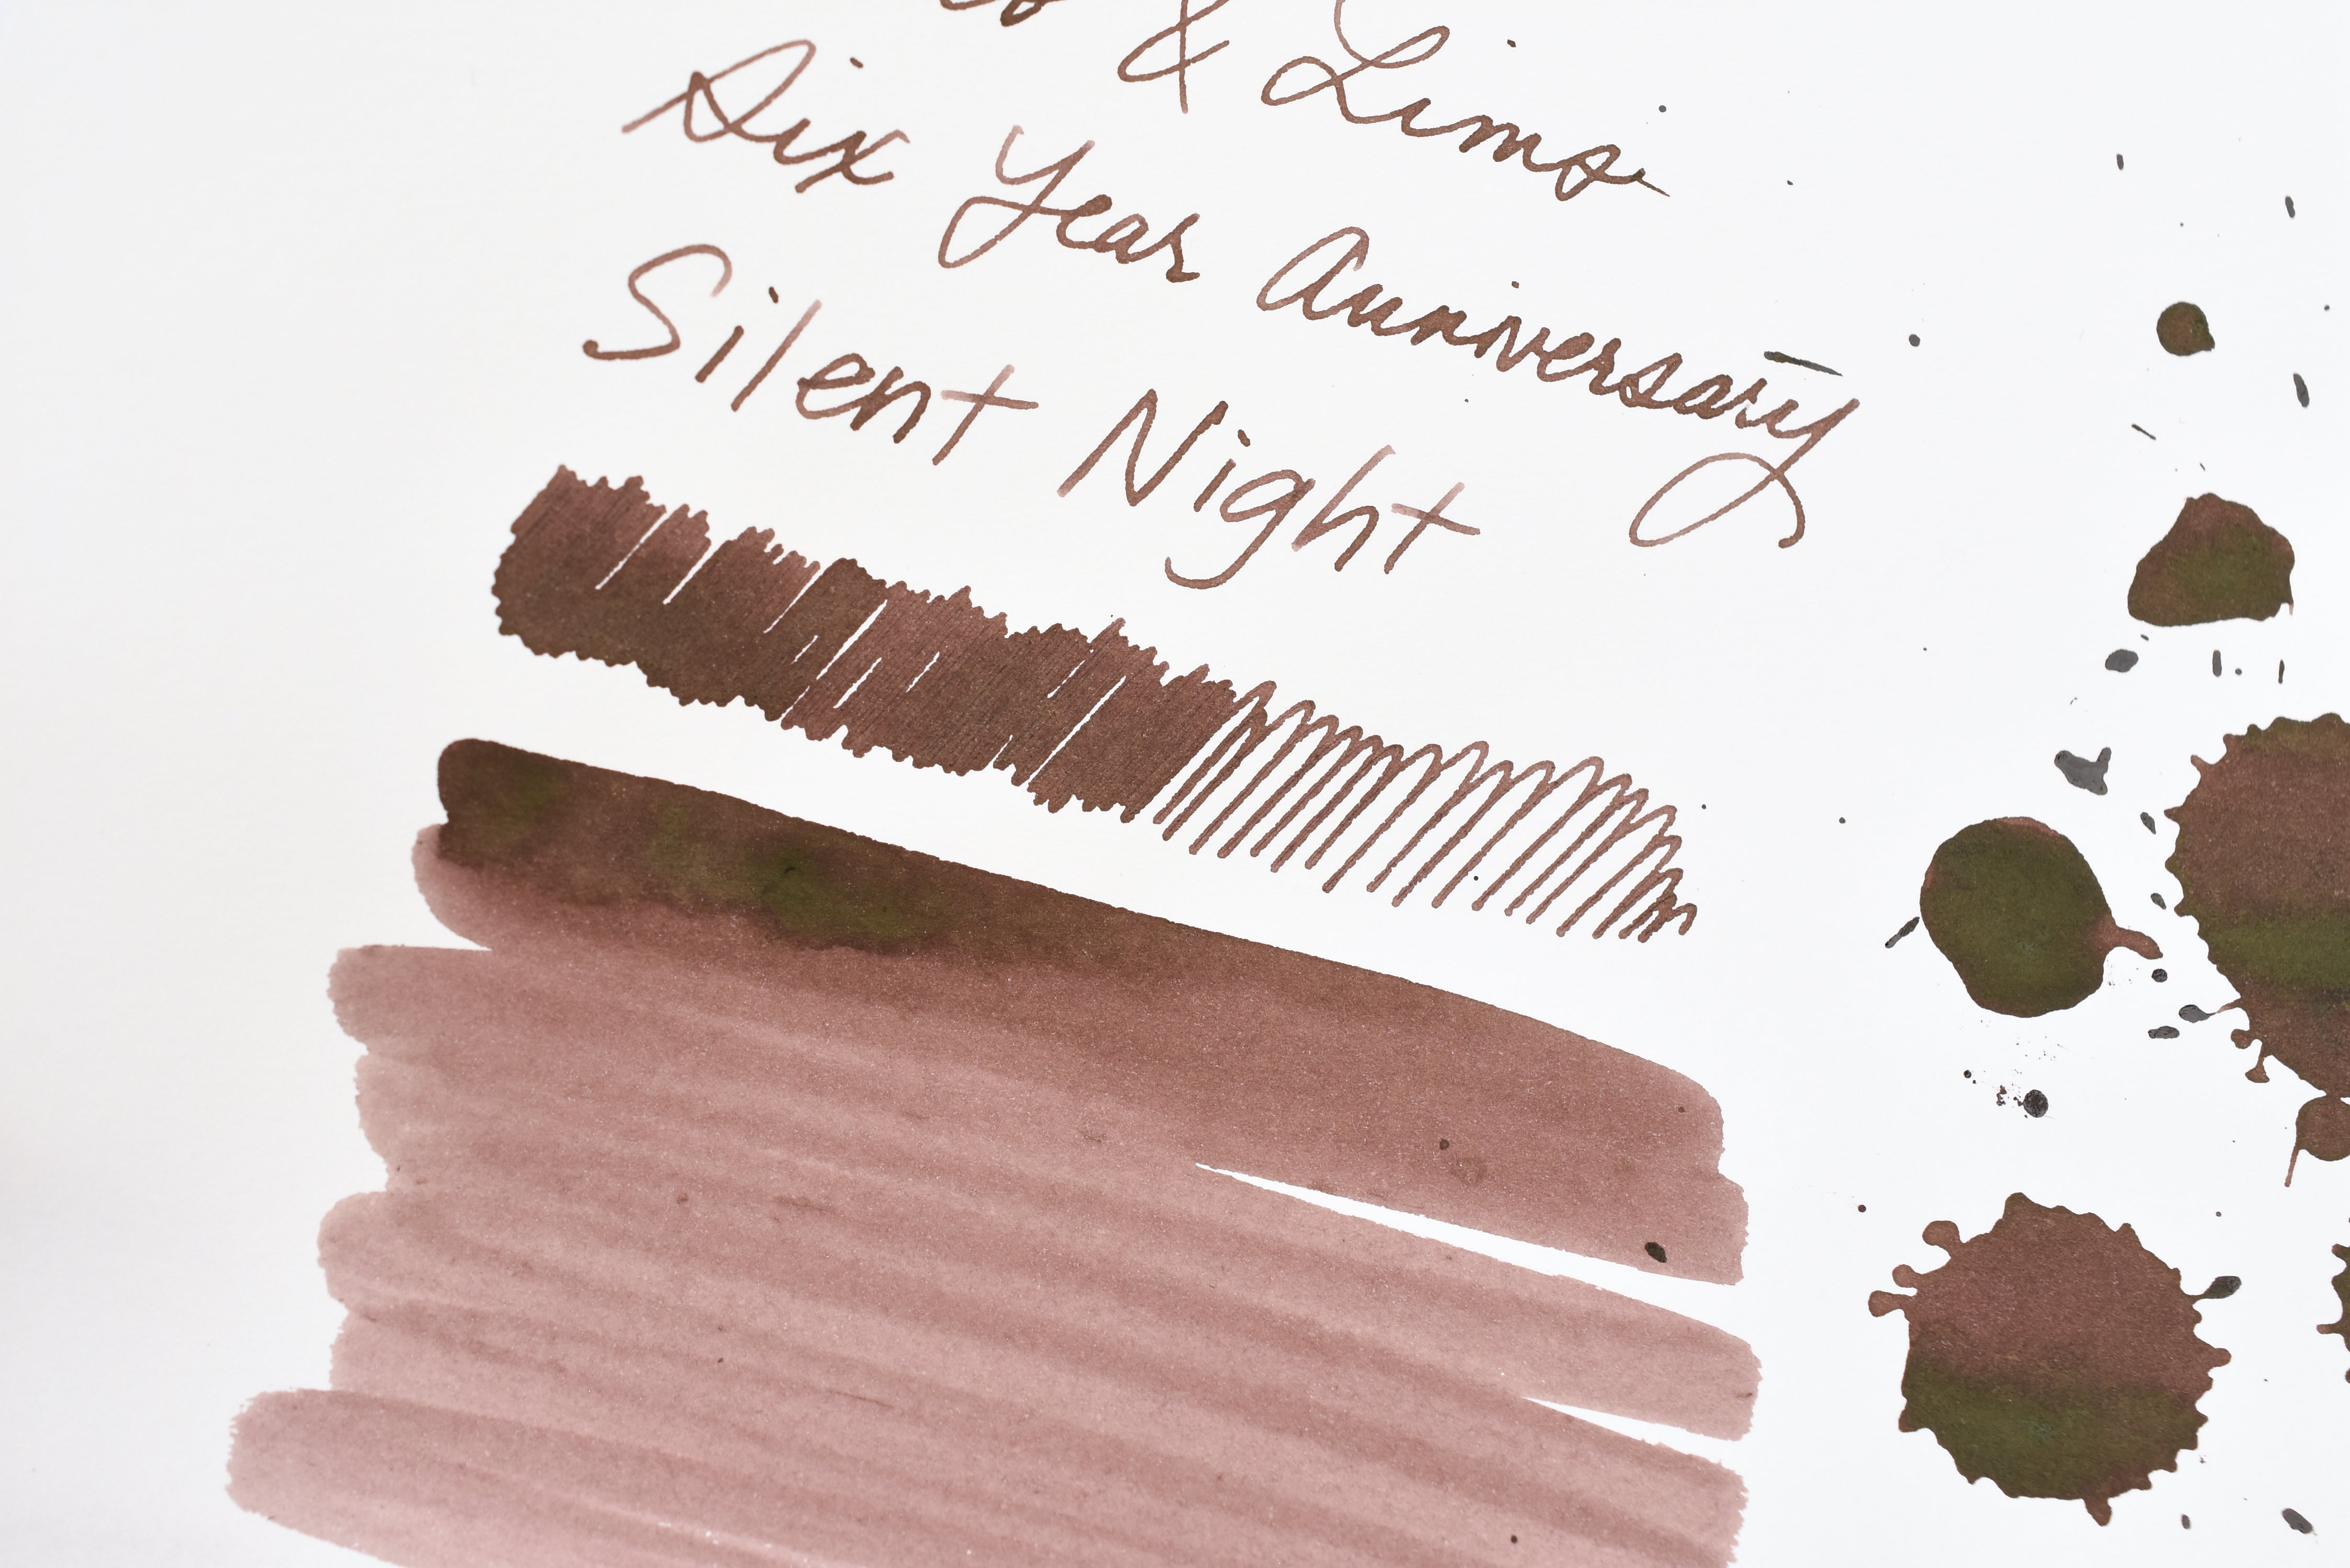 & Lims
Six Year Anniversary
Silent Night